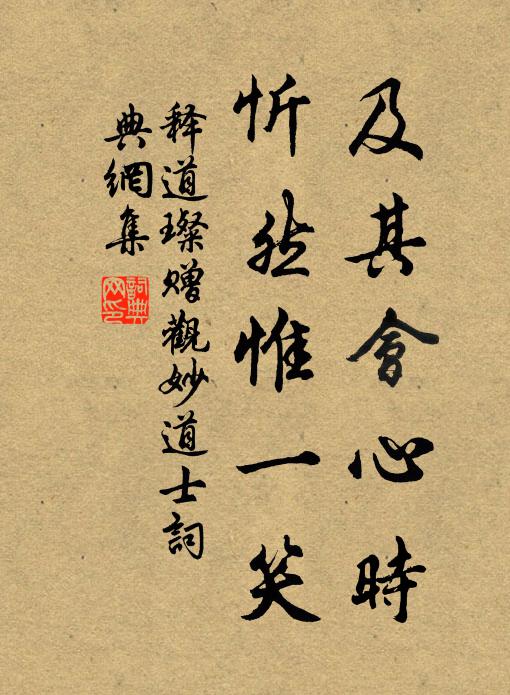 及其會心時
忻然惟一笑
释道璨赠觀妙道士詞
典網集
詞典
网印